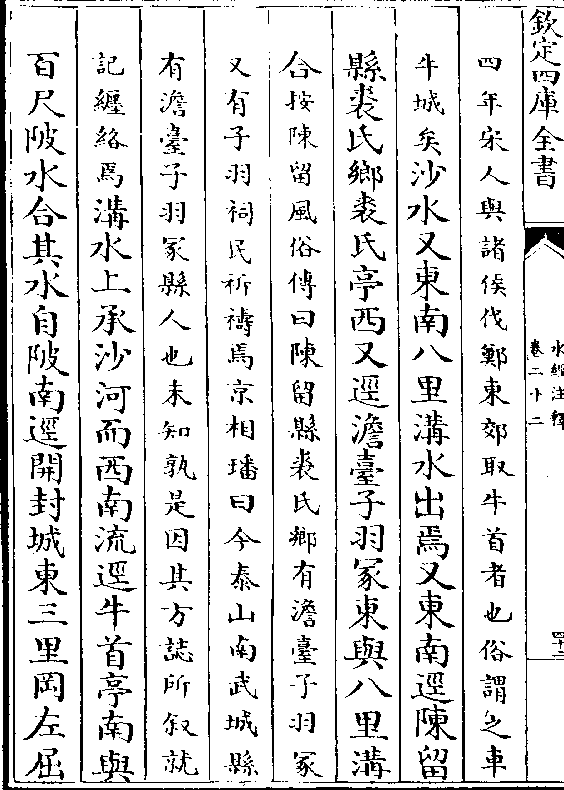 欽定四庫全書
水經注釋
卷二十二
四十二
四年宋人與諸侯伐鄭東郊取牛首者也俗謂之車
牛城矣沙水又東南八里溝水出焉又東南逕陳留
縣裘氏鄉裘氏亭西又逕澹臺子羽冢東與八里溝
合按陳留風俗傳曰陳留縣裘氏鄉有澹臺子羽冢
又有子羽祠民祈禱焉京相璠曰今泰山南武城縣
有澹臺子羽冢縣人也未知孰是因其方誌所叙就
記纏絡焉溝水上承沙河而西南流逕牛首亭南與
百尺陂水合其水自陂南逕開封城東三里岡左屈